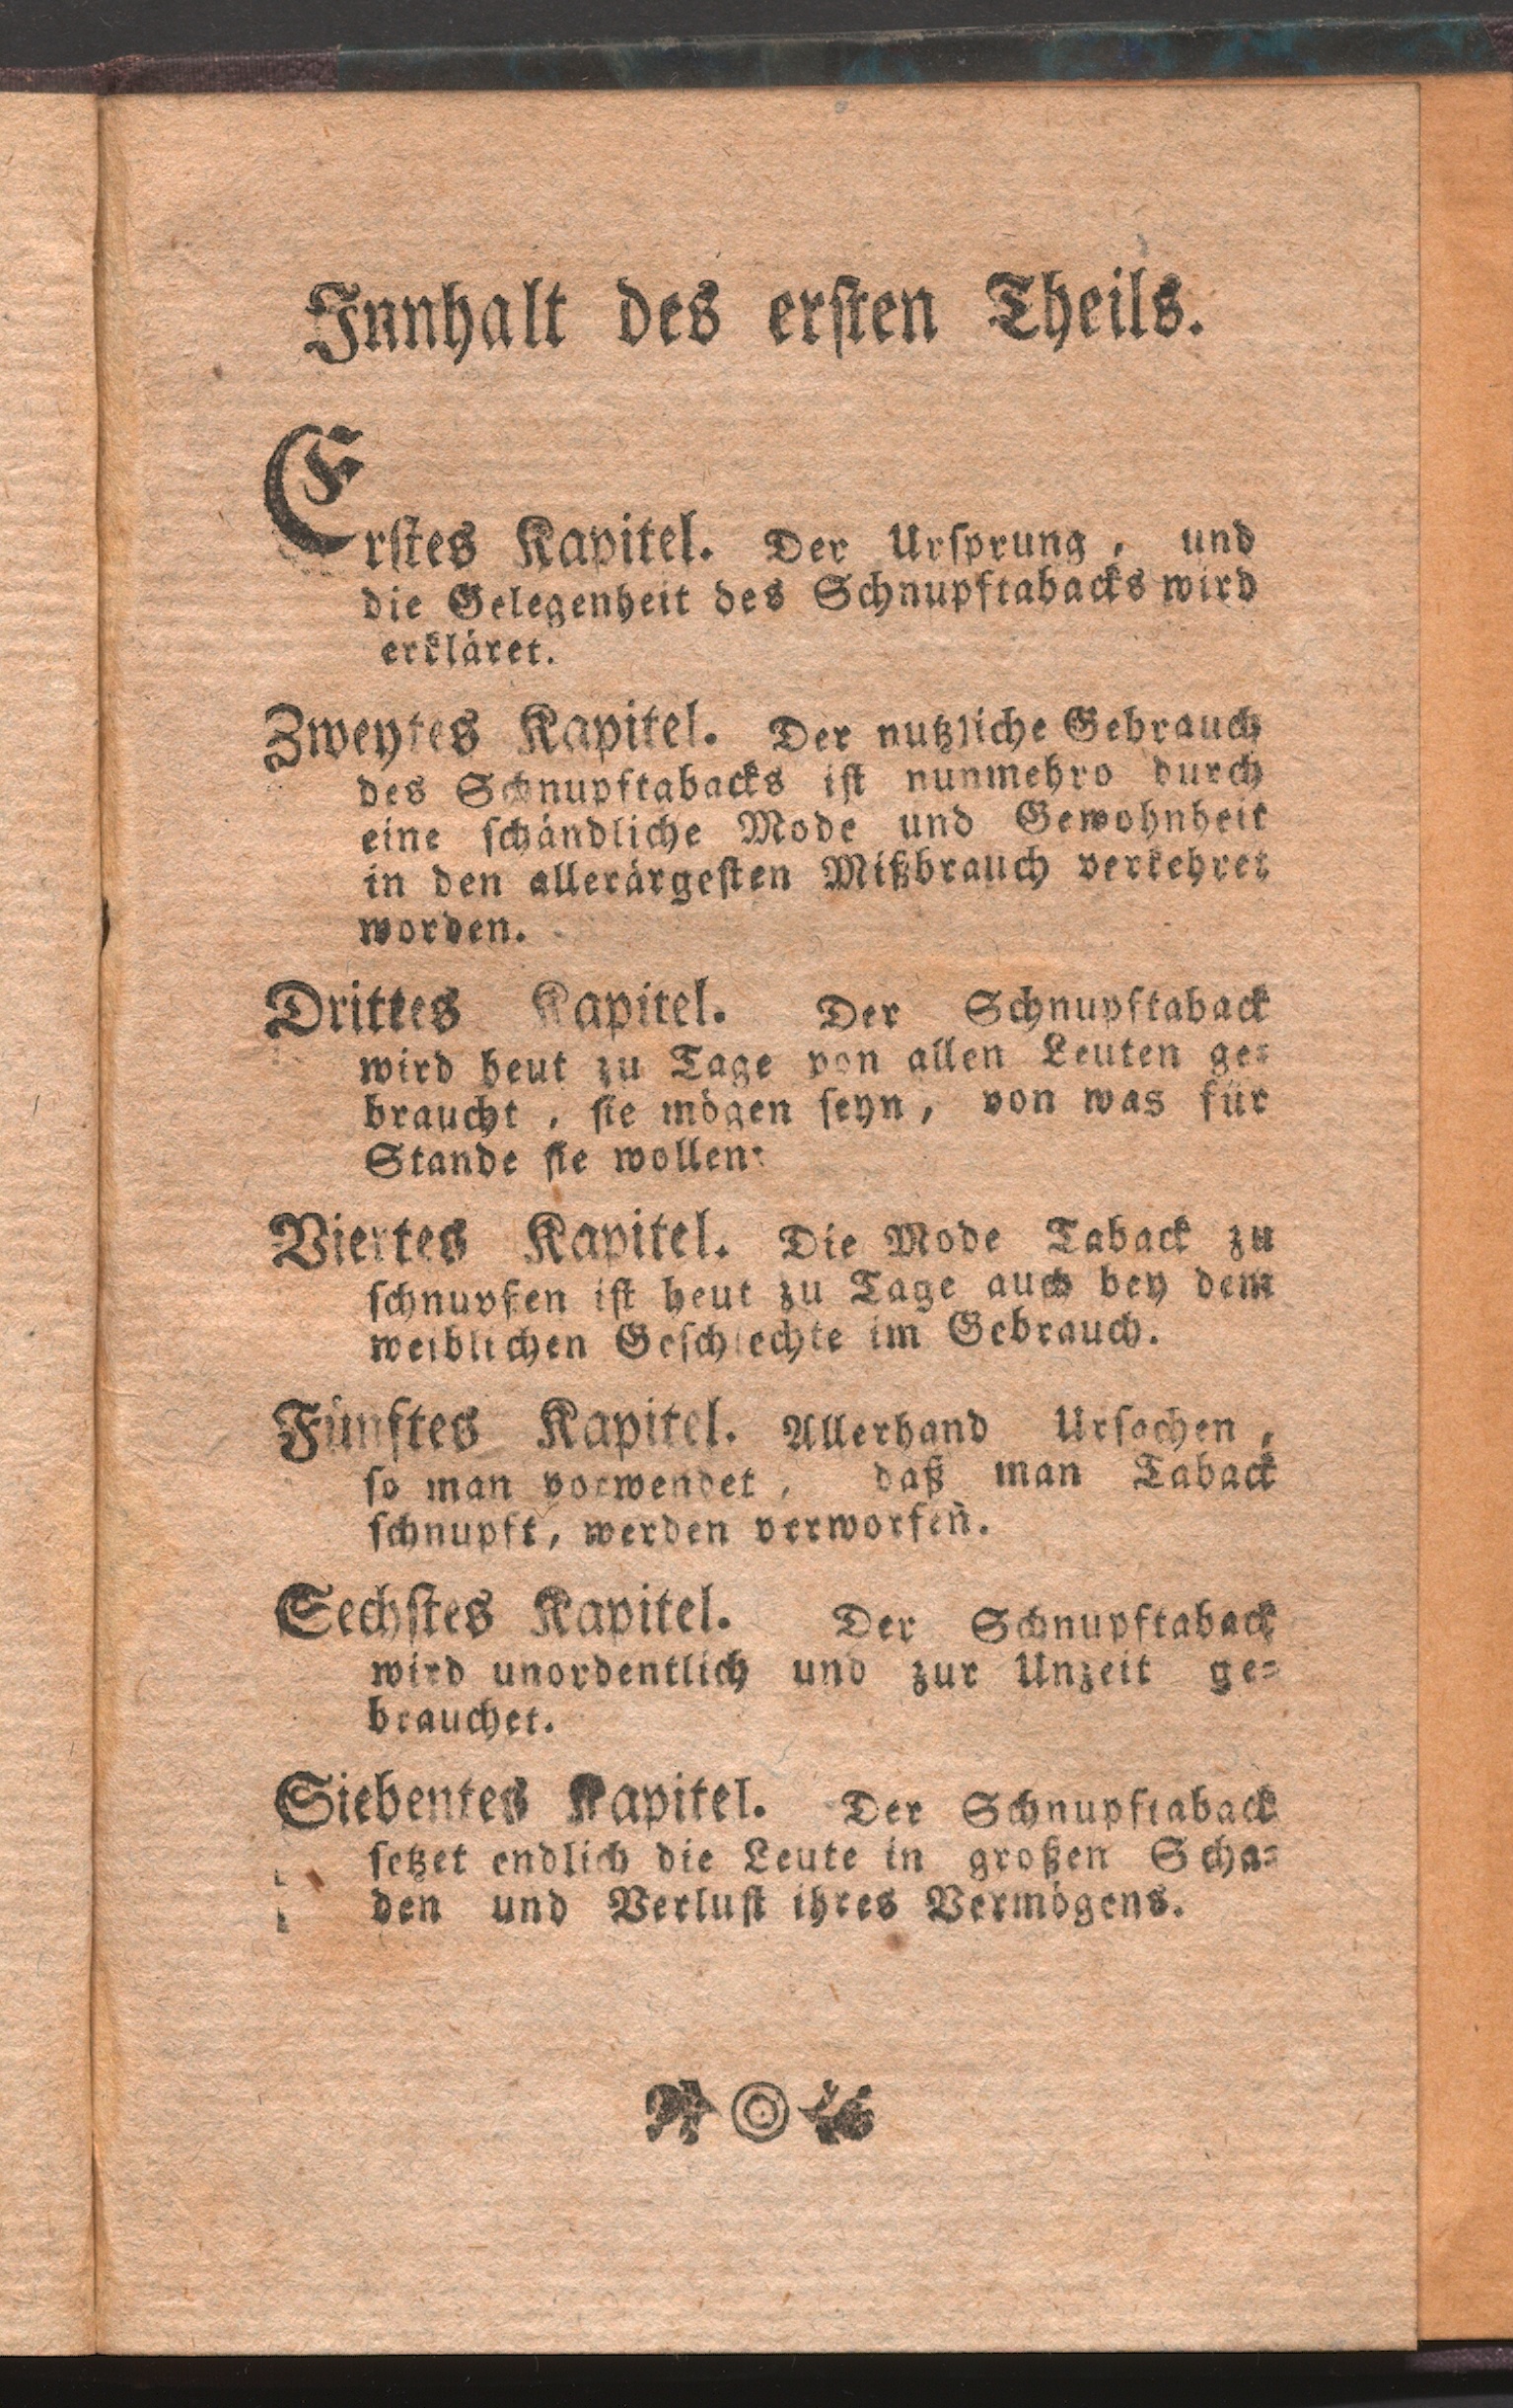 Innhalt des ersten Theils.
Erstes Kapitel. Der Ursprung, und
die Gelegenheit des Schnupftabacks wird
erkläret.
Zweytes Kapitel. Der nutzliche Gebrauch
des Schnupftabacks ist nunmehro durch
eine schändliche Mode und Gewohnheit
in den allerärgesten Mißbrauch verkehret
worden.
Drittes Kapitel. Der Schnupftaback
wird heut zu Tage von allen Leuten ge-
braucht, sie mögen seyn, von was für
Stande sie wollen.
Viertes Kapitel. Die Mode Taback zu
schnupfen ist heut zu Tage auch bey dem
weiblichen Geschlechte im Gebrauch.
Fünftes Kapitel. Allerhand Ursachen,
so man vorwendet, daß man Taback
schnupft, werden verworfen.
Sechstes Kapitel. Der Schnupftaback
wird unordentlich und zur Unzeit ge-
brauchet.
Siebentes Kapitel. Der Schnupftaback
setzet endlich die Leute in großen Scha-
den und Verlust ihres Vermögens.